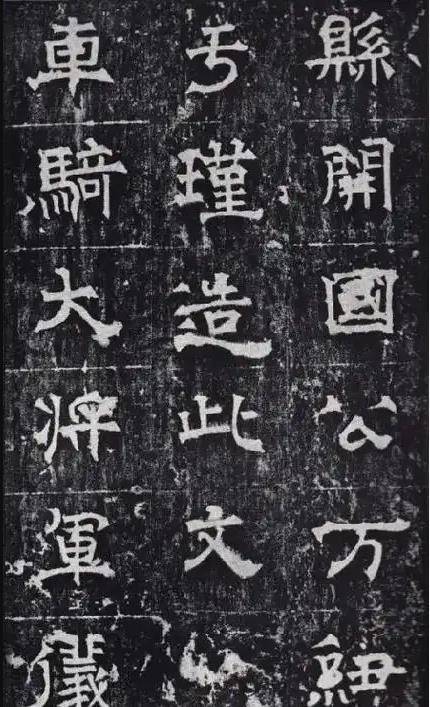 縣開國公万紐
于瑾造此文
車騎大將軍儀